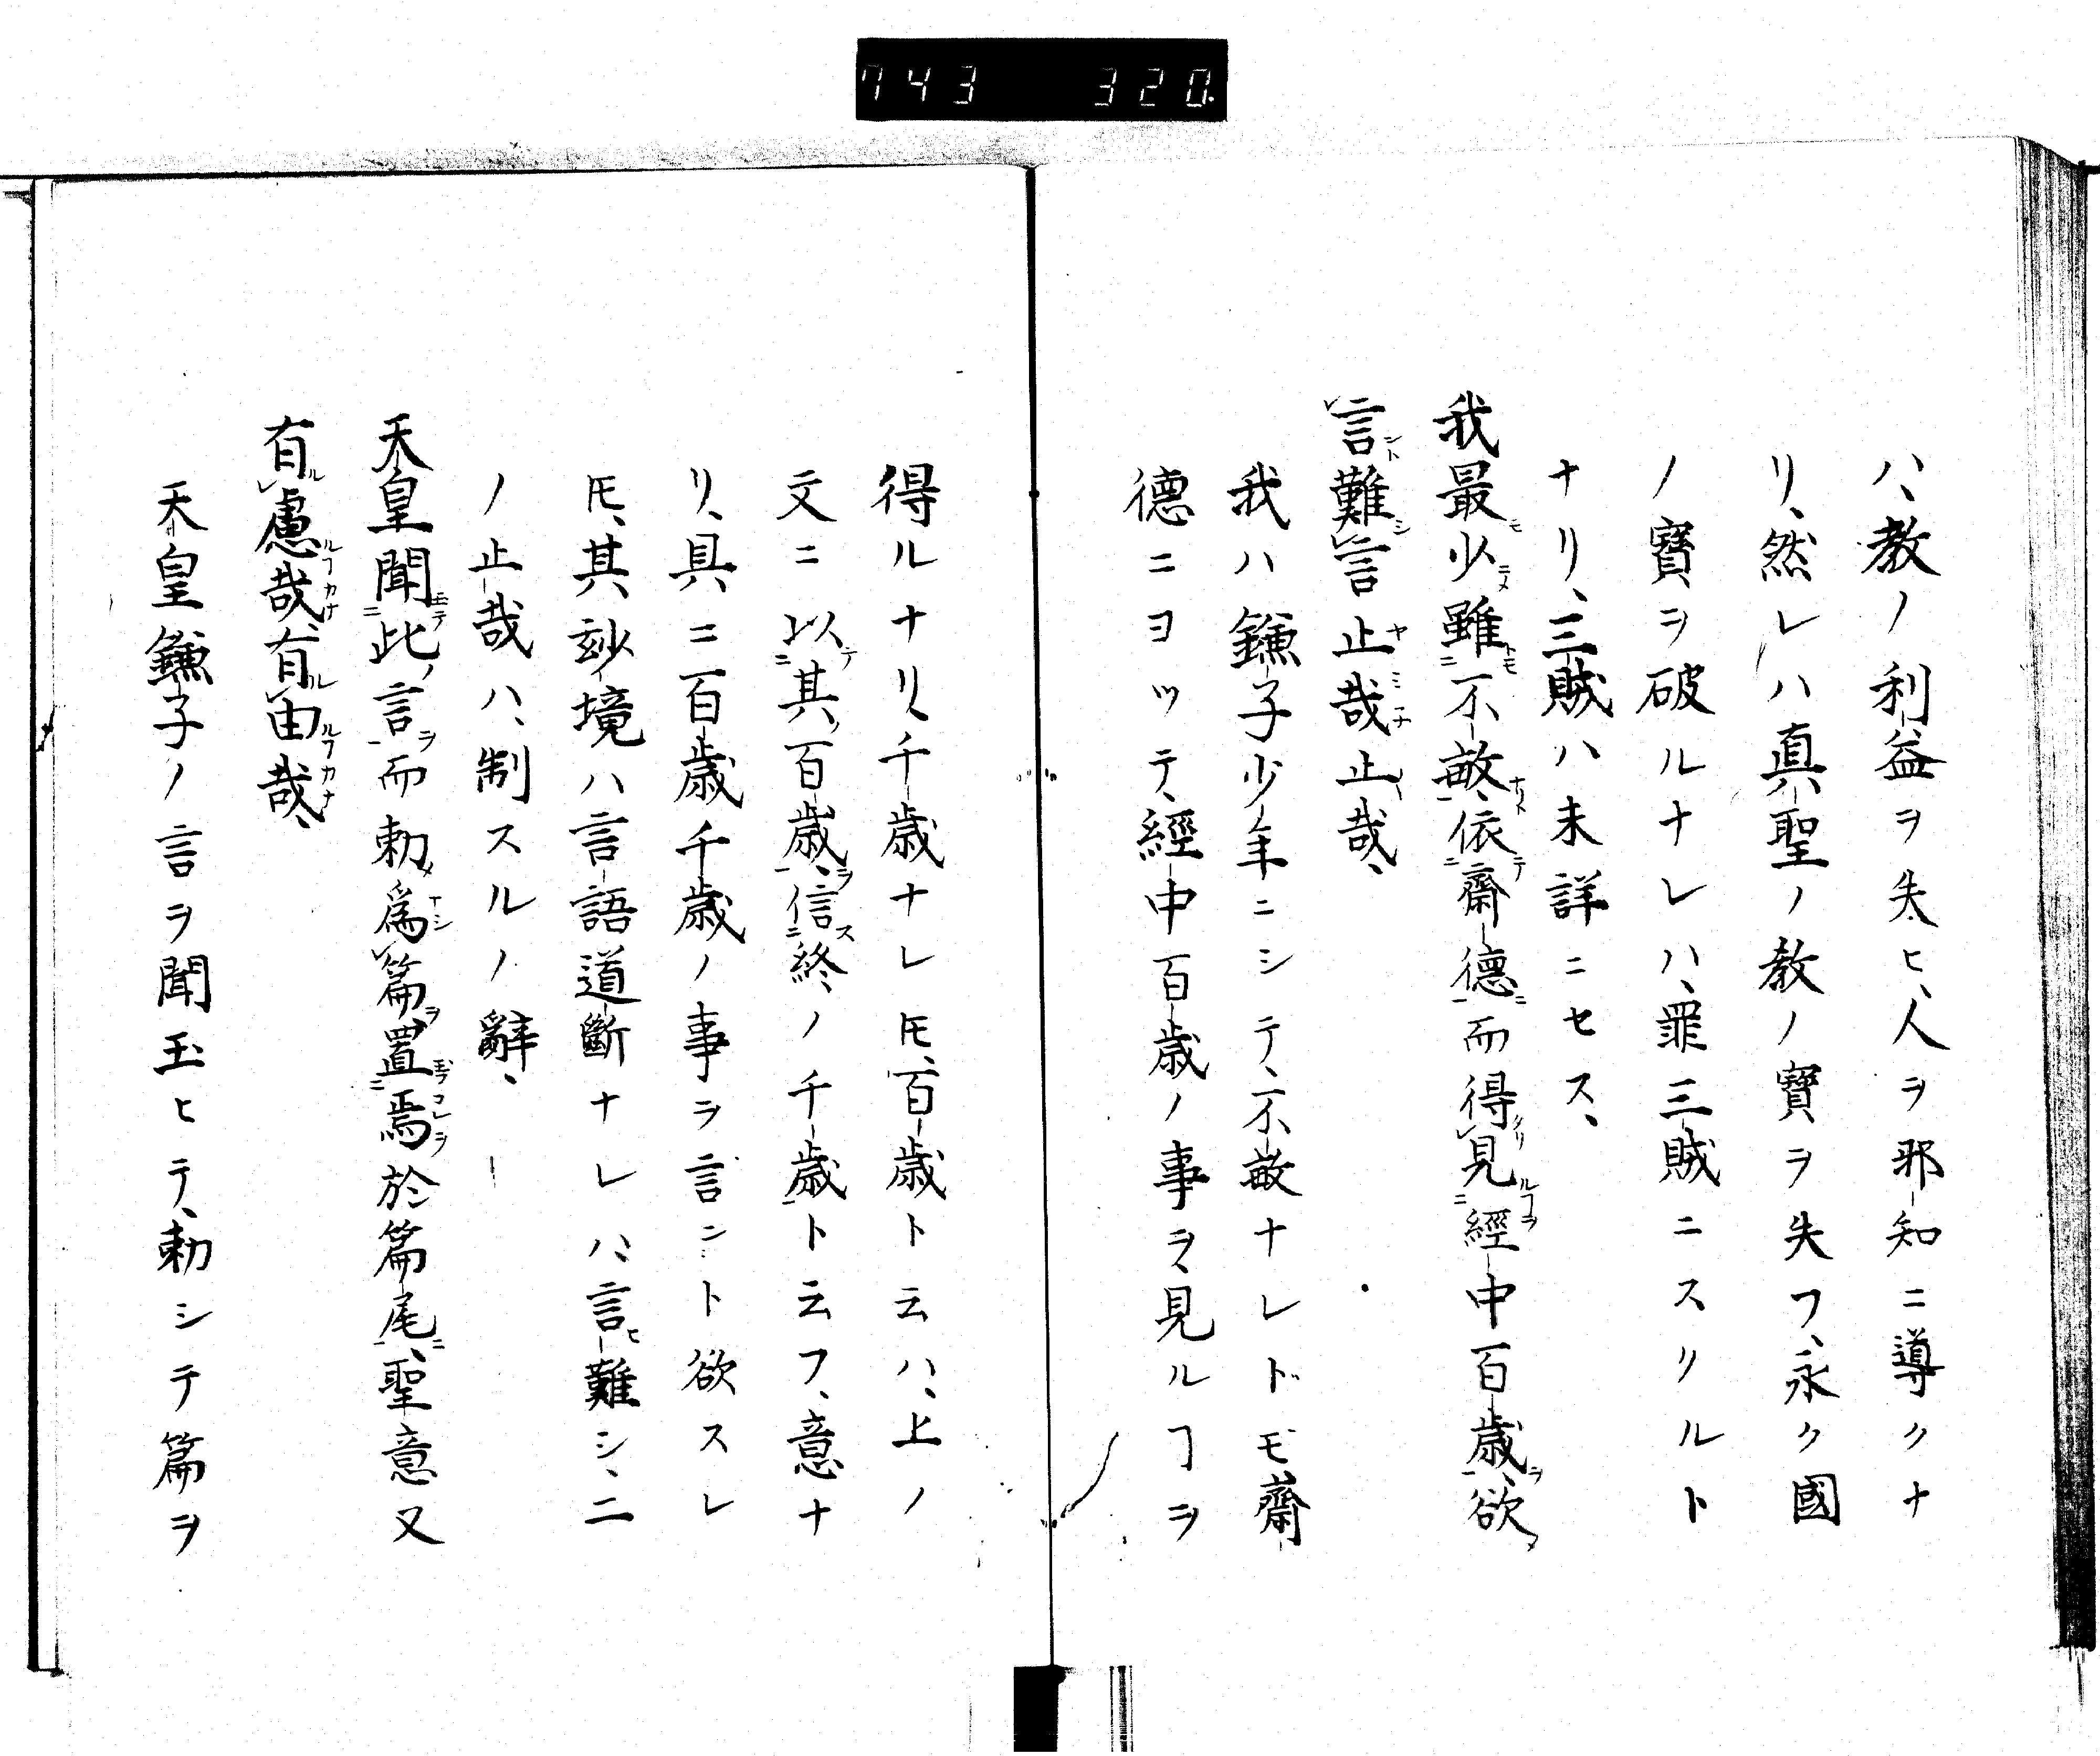 743 320.
ハ、教ノ利益ヲ失ヒ、人ヲ邪知ニ導クナ
リ、然レハ真聖ノ教ノ寶ヲ失フ、永ク國
ノ寶ヲ破ルナレハ、罪三賊ニスクルト
ナリ、三賊ハ未詳ニセス、
我最少雖不敏、依齋德而得見經中百歳、欲
言難言止哉止哉、
我ハ鎌子少年ニシテ、不敏ナレドモ齋
德ニヨッテ、經中百歳ノ事ヲ見ルヿヲ
得ルナリ、千歳ナレ𪜈、百歳ト云ハ、上ノ
文ニ以其百歳、信終ノ千歳ト云フ、意ナ
リ、具ニ百歳千歳ノ事ヲ言ント欲スレ
𪜈、其玅境ハ言語道斷ナレハ、言難シ、二
ノ止哉ハ、制スルノ辭、
天皇聞此言而勅為篇、置焉於篇尾、聖意又
有慮哉、有由哉、
天皇鎌子ノ言ヲ聞玉ヒテ、勅シテ篇ヲ